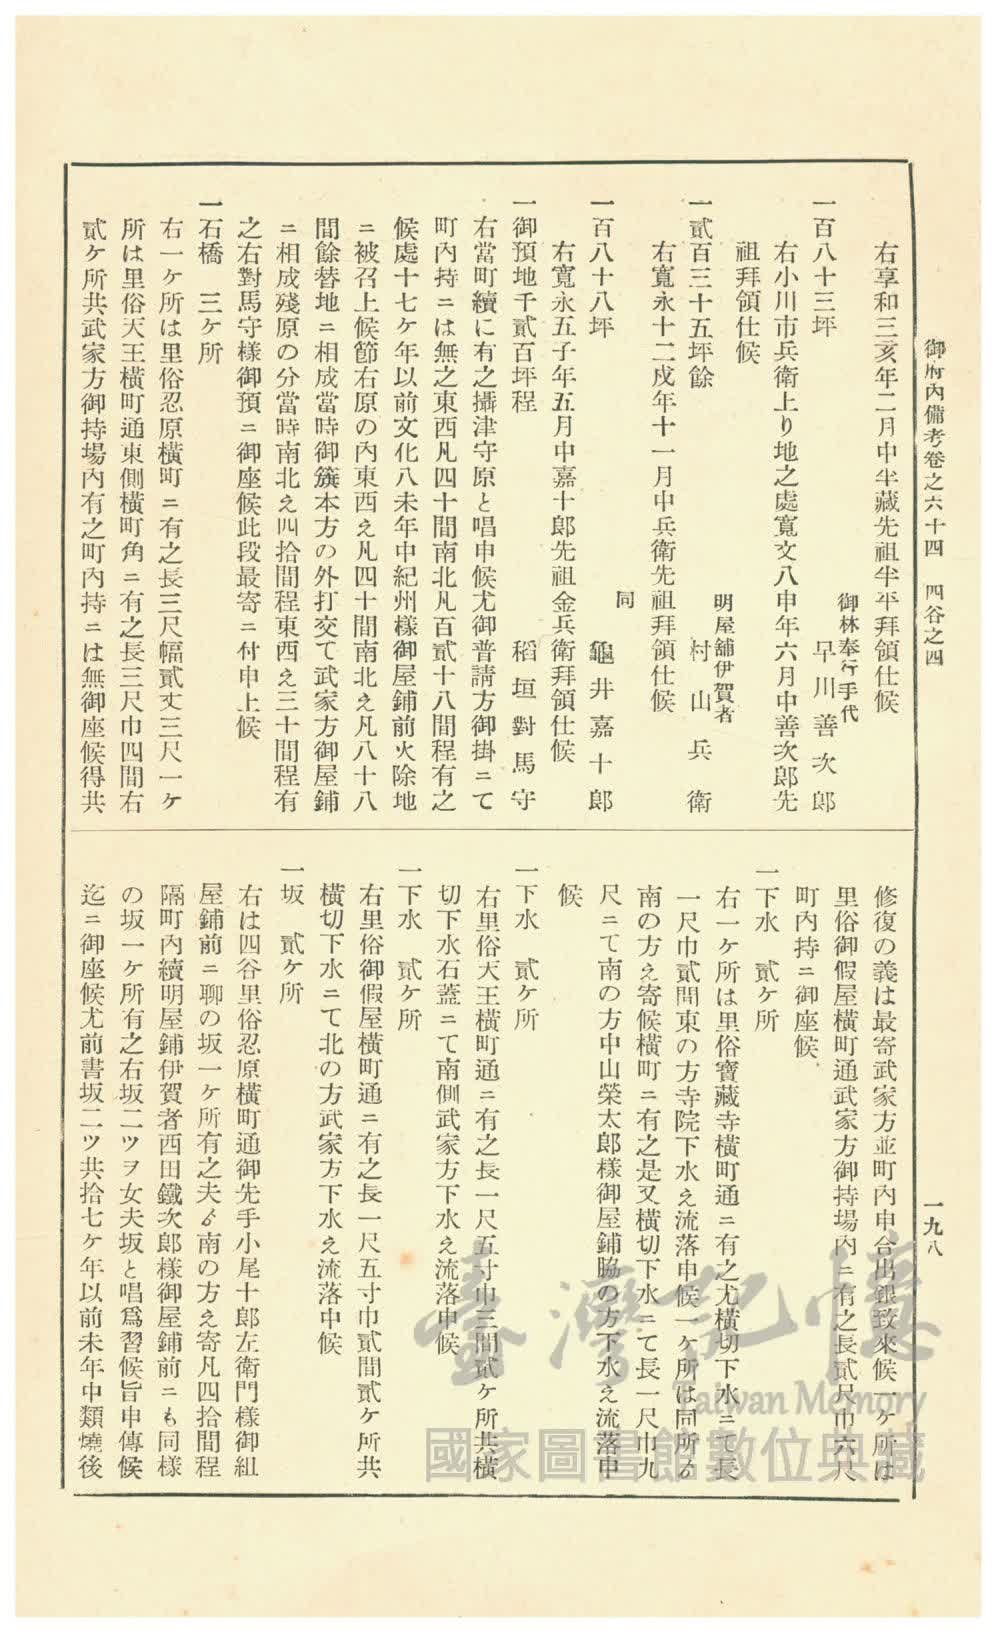 御府內備考卷之六十四　四谷之四
一九八
右享和三亥年二月中半藏先祖半平拜領仕候
御林奉行手代
一百八十三坪　早川善次郎
右小川市兵衛上り地之處寬文八申年六月中善次郎先
祖拜領仕候
明屋舖伊賀者
一貳百三十五坪餘　村山兵衛
右寬永十二戍年十一月中兵衛先祖拜領仕候
同
一百八十八坪　龜井嘉十郎
右寬永五子年五月中嘉十郎先祖金兵衛拜領仕候
一御預地千貳百坪程　稻垣對馬守
右當町續に有之攝津守原と唱申候尤御普請方御掛ニて
町內持ニは無之東西凡四十間南北凡百貳十八間程有之
候處十七ケ年以前文化八未年中紀州樣御屋鋪前火除地
ニ被召上候節右原の內東西え凡四十間南北え凡八十八
間餘替地ニ相成當時御簱本方の外打交て武家方御屋鋪
ニ相成殘原の分當時南北え四拾間程東西え三十間程有
之右對馬守樣御預ニ御座候此段最寄ニ付申上候
一石橋　三ケ所
右一ケ所は里俗忍原橫町ニ有之長三尺幅貳丈三尺一ケ
所は里俗天王橫町通東側橫町角ニ有之長三尺巾四間右
貳ケ所共武家方御持場內有之町內持ニは無御座候得共
修復の義は最寄武家方並町內申合出銀致來候一ケ所は
里俗御假屋橫町通武家方御持場內ニ有之長貳尺巾六尺
町內持ニ御座候
一下水　貳ケ所
右一ケ所は里俗寶藏寺橫町通ニ有之尤橫切下水ニて長
一尺巾貳間東の方寺院下水え流落申候一ケ所は同所ゟ
南の方え寄候橫町ニ有之是又橫切下水ニて長一尺巾九
尺ニて南の方中山榮太郎樣御屋鋪脇の方下水え流落申
候
一下水　貳ケ所
右里俗天王橫町通ニ有之長一尺五寸巾三間貳ケ所共橫
切下水石蓋ニて南側武家方下水え流落申候
一下水　貳ケ所
右里俗御假屋橫町通ニ有之長一尺五寸巾貳間貳ケ所共
橫切下水ニて北の方武家方下水え流落申候
一坂　貳ケ所
右は四谷里俗忍原橫町通御先手小尾十郎左衛門樣御組
屋鋪前ニ聊の坂一ケ所有之夫ゟ南の方え寄凡四拾間程
隔町內續明屋鋪伊賀者西田鐵次郎樣御屋鋪前ニも同樣
の坂一ケ所有之右坂二ツヲ女夫坂と唱爲習候旨申傳候
迄ニ御座候尤前書坂二ツ共拾七ケ年以前未年中類燒後
臺灣記憶
Taiwan Memory
國家圖書館數位典藏